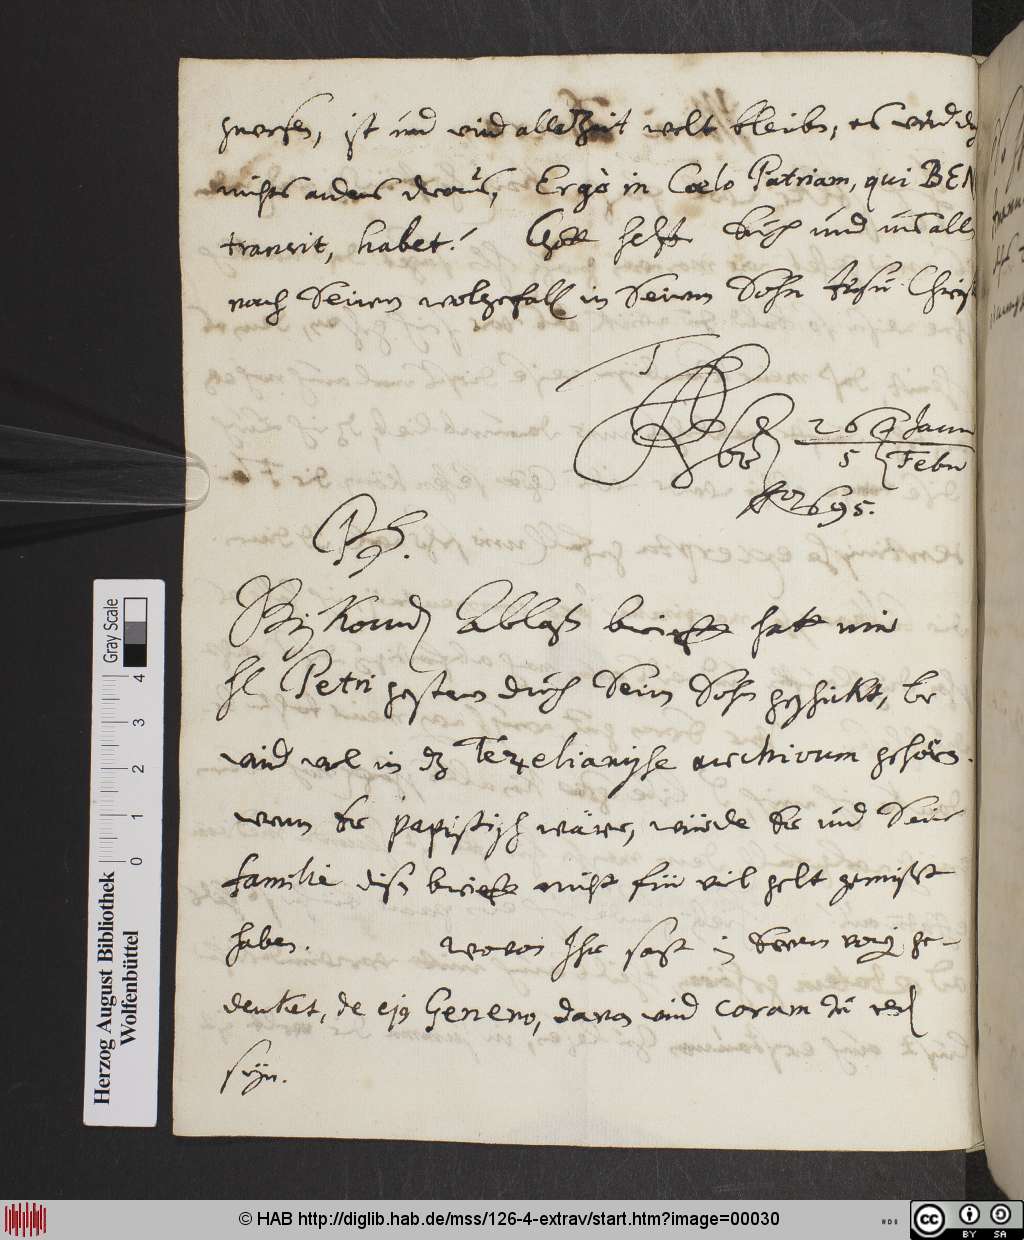 gewesen, ist und wird alle Zeit welt bleiben, es wird
nichts anders draus, Ergò in Cœlo Patriam, qui BEN
transiit, habet. Gott helffe Euch und uns alln
nach Seinem wolgefall in Seinem Sohn Jesu Christ
26 Janu
5 Febr
1695.
PS.
Bey Kommend Ablaß brieffe hatt mir
H Petri gestern durch Sein Sohn geschickt, Er
wird wol in dz Tezelianische archivum gehören.
wenn Er papistisch wäre, würde Er und Seine
familie diß brieffe nicht für viel gelt gemisst
haben. wovon Ihr sonst in Eurem vorig ge-
denket, de ejus Genero, davon wird coram zu red
seyn.
Gray Scale
0 1 2 3 4
Herzog August Bibliothek
Wolfenbüttel
© HAB http://diglib.hab.de/mss/126-4-extrav/start.htm?image=00030
cc BY SA